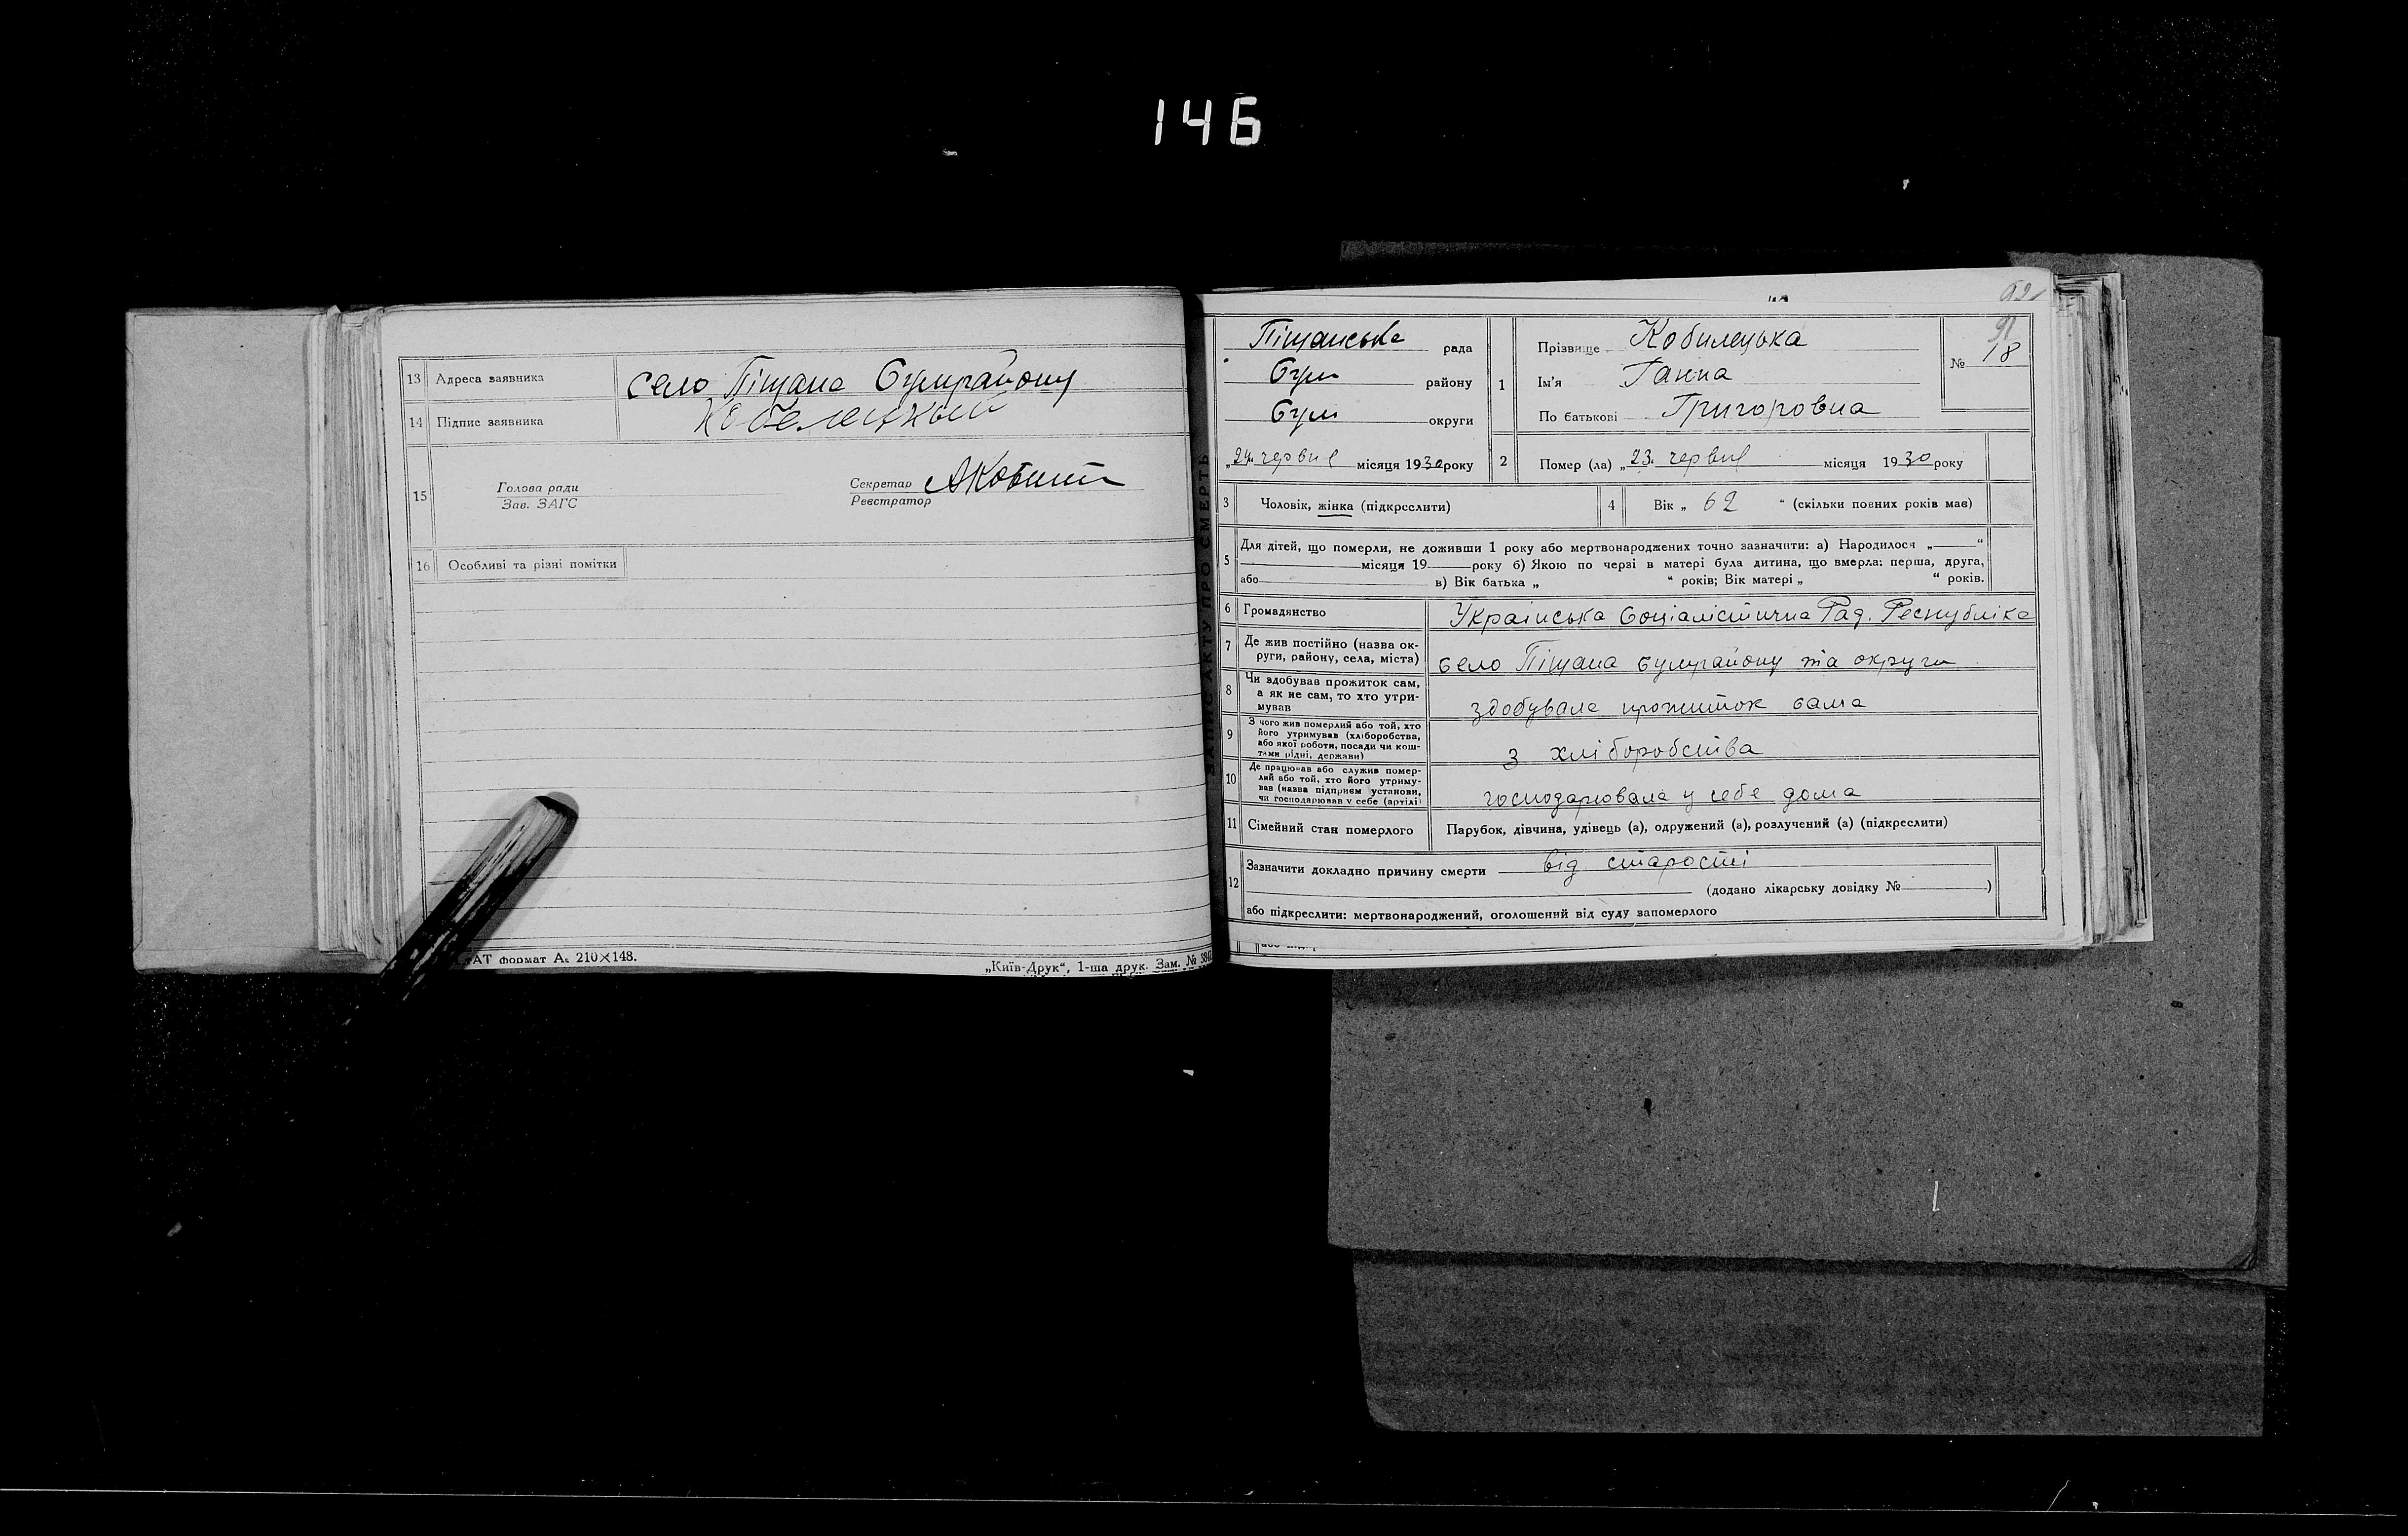 146
13 Адреса заявника село Піщана Сумрайону
14 Підпис заявника Кобелецкий
15 Голова ради
Зав. ЗАГС
Секретар
Реєстратор
16 Особливі та різні помітки
АТ формат А₅ 210×148.
„Київ-Друк“, 1-ша друк. Зам. №
ЗАПИС АКТУ ПРО СМЕРТЬ
Піщанська рада
Сум району
Сум округи
„24. червня місяця 1930 року
1 Прізвище Кобилецька
Ім'я Ганна
По батькові Григоровна
№ 18
2 Помер (ла) „23. червня місяця 1930 року
3 Чоловік, жінка (підкреслити)
4 Вік „ 62 “ (скільки повних років мав)
5 Для дітей, що померли, не доживши 1 року або мертвонароджених точно зазначити: а) Народилося „ “
місяця 19 року б) Якою по черзі в матері була дитина, що вмерла: перша, друга,
або в) Вік батька „ “ років; Вік матері „ “ років.
6 Громадянство Українська Соціалістична Рад. Республіка
7 Де жив постійно (назва ок-
руги, району, села, міста) село Піщана Сумрайону та округи
8 Чи здобував прожиток сам,
а як не сам, то хто утри-
мував здобувала прожиток сама
9 З чого жив померлий або той, хто
його утримував (хліборобства,
або якої роботи, посади чи кош-
тами рідні, держави) з хліборобства
10 Де працював або служив помер-
лий або той, хто його утриму-
вав (назва підприєм установи,
чи господарював у себе (артілі) господарювала у себе дома
11 Сімейний стан померлого Парубок, дівчина, удівець (а), одружений (а), розлучений (а) (підкреслити)
12 Зазначити докладно причину смерти від старости
(додано лікарську довідку № )
або підкреслити: мертвонароджений, оголошений від суду запомерлого